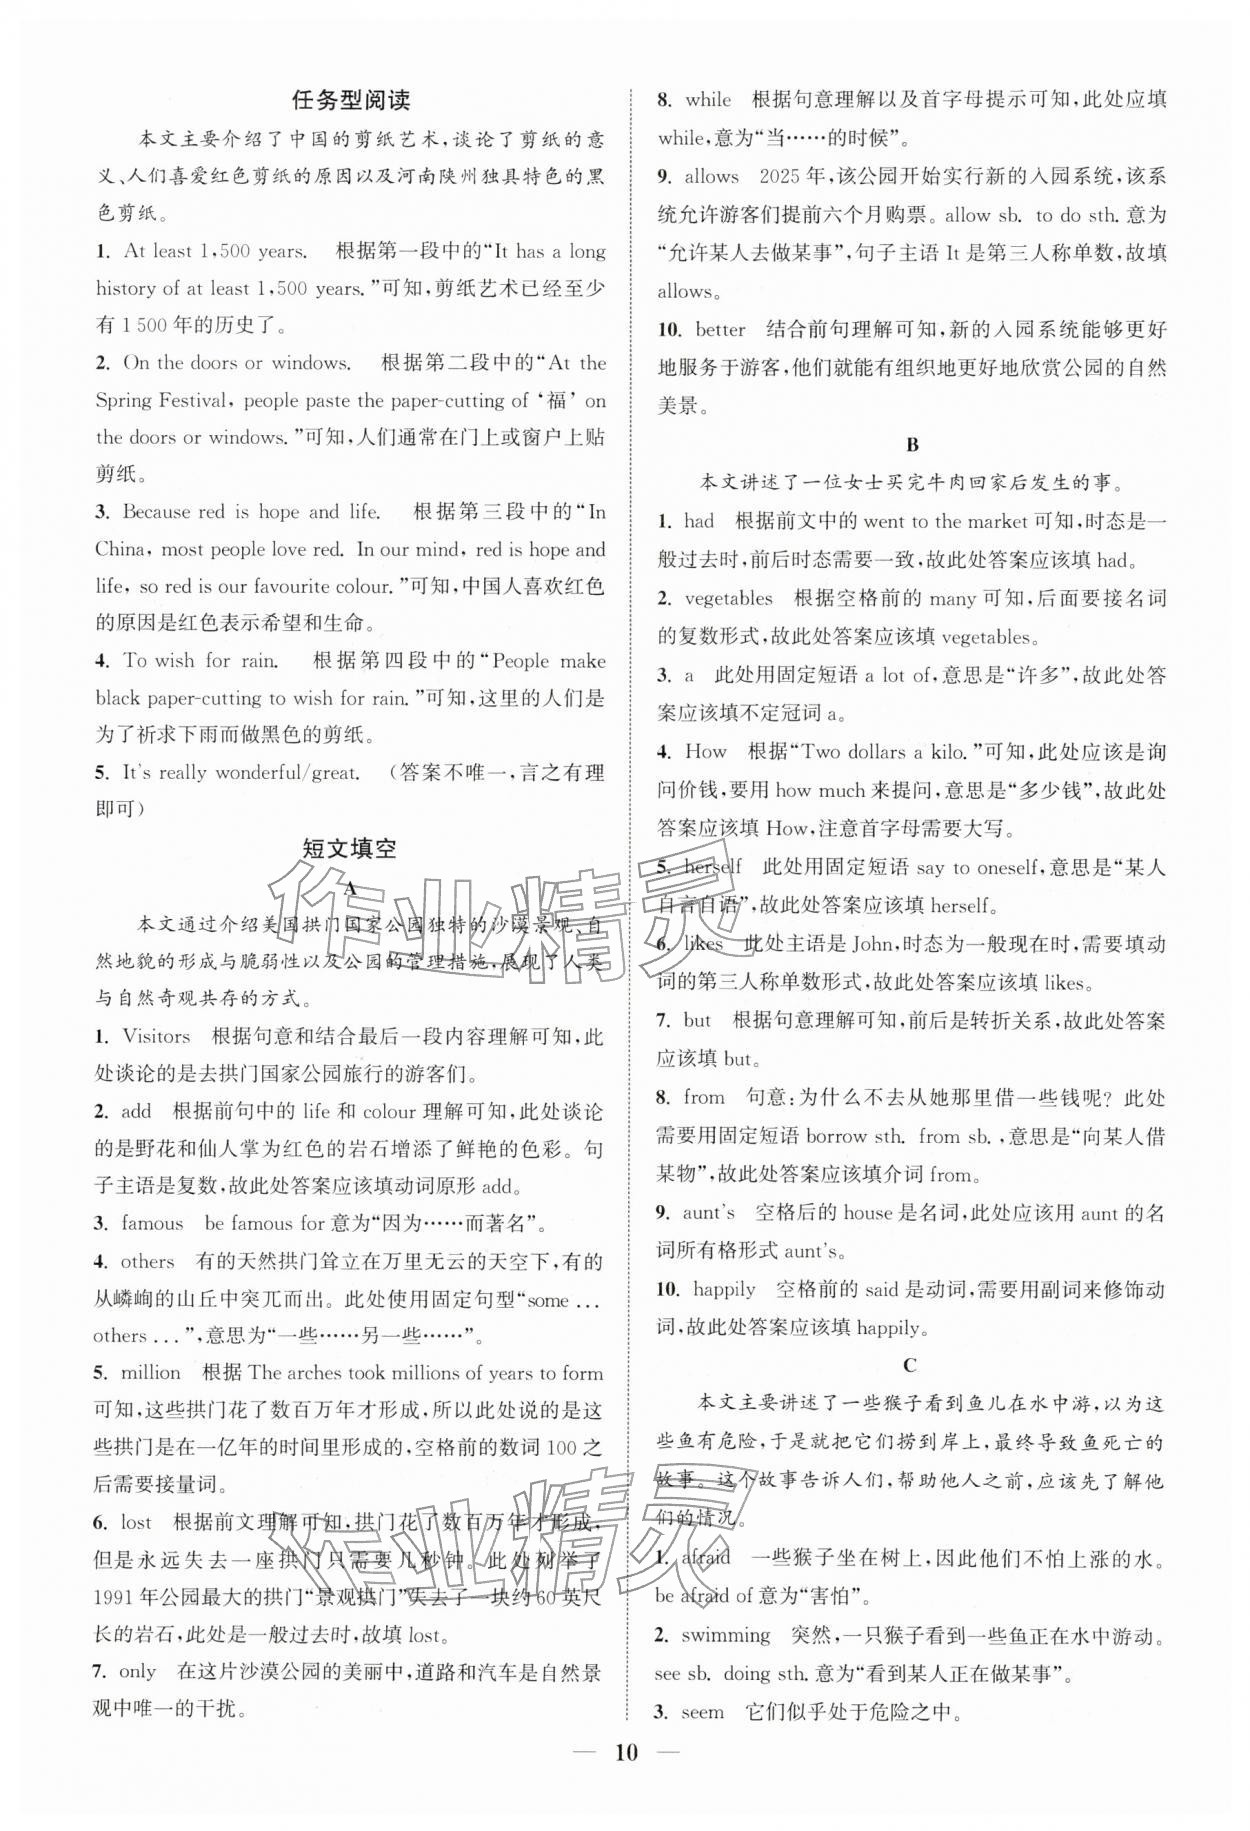 任务型阅读
本文主要介绍了中国的剪纸艺术,谈论了剪纸的意
义、人们喜爱红色剪纸的原因以及河南陕州独具特色的黑
色剪纸。
1. At least 1,500 years. 根据第一段中的“It has a long
history of at least 1,500 years.”可知,剪纸艺术已经至少
有 1 500 年的历史了。
2. On the doors or windows. 根据第二段中的“At the
Spring Festival, people paste the paper-cutting of ‘福’ on
the doors or windows.”可知,人们通常在门上或窗户上贴
剪纸。
3. Because red is hope and life. 根据第三段中的“In
China, most people love red. In our mind, red is hope and
life, so red is our favourite colour.”可知,中国人喜欢红色
的原因是红色表示希望和生命。
4. To wish for rain. 根据第四段中的“People make
black paper-cutting to wish for rain.”可知,这里的人们是
为了祈求下雨而做黑色的剪纸。
5. It's really wonderful/great. (答案不唯一,言之有理
即可)
短文填空
A
本文通过介绍美国拱门国家公园独特的沙漠景观、自
然地貌的形成与脆弱性以及公园的管理措施,展现了人类
与自然奇观共存的方式。
1. Visitors 根据句意和结合最后一段内容理解可知,此
处谈论的是去拱门国家公园旅行的游客们。
2. add 根据前句中的 life 和 colour 理解可知,此处谈论
的是野花和仙人掌为红色的岩石增添了鲜艳的色彩。句
子主语是复数,故此处答案应该填动词原形 add。
3. famous be famous for 意为“因为……而著名”。
4. others 有的天然拱门耸立在万里无云的天空下,有的
从嶙峋的山丘中突兀而出。此处使用固定句型“some ...
others ...”,意思为“一些……另一些……”。
5. million 根据 The arches took millions of years to form
可知,这些拱门花了数百万年才形成,所以此处说的是这
些拱门是在一亿年的时间里形成的,空格前的数词 100 之
后需要接量词。
6. lost 根据前文理解可知,拱门花了数百万年才形成,
但是永远失去一座拱门只需要几秒钟。此处列举了
1991 年公园最大的拱门“景观拱门”失去了一块约 60 英尺
长的岩石,此处是一般过去时,故填 lost。
7. only 在这片沙漠公园的美丽中,道路和汽车是自然景
观中唯一的干扰。
8. while 根据句意理解以及首字母提示可知,此处应填
while,意为“当……的时候”。
9. allows 2025 年,该公园开始实行新的入园系统,该系
统允许游客们提前六个月购票。allow sb. to do sth. 意为
“允许某人去做某事”,句子主语 It 是第三人称单数,故填
allows。
10. better 结合前句理解可知,新的入园系统能够更好
地服务于游客,他们就能有组织地更好地欣赏公园的自然
美景。
B
本文讲述了一位女士买完牛肉回家后发生的事。
1. had 根据前文中的 went to the market 可知,时态是一
般过去时,前后时态需要一致,故此处答案应该填 had。
2. vegetables 根据空格前的 many 可知,后面要接名词
的复数形式,故此处答案应该填 vegetables。
3. a 此处用固定短语 a lot of,意思是“许多”,故此处答
案应该填不定冠词 a。
4. How 根据“Two dollars a kilo.”可知,此处应该是询
问价钱,要用 how much 来提问,意思是“多少钱”,故此处
答案应该填 How,注意首字母需要大写。
5. herself 此处用固定短语 say to oneself,意思是“某人
自言自语”,故此处答案应该填 herself。
6. likes 此处主语是 John,时态为一般现在时,需要填动
词的第三人称单数形式,故此处答案应该填 likes。
7. but 根据句意理解可知,前后是转折关系,故此处答案
应该填 but。
8. from 句意:为什么不去从她那里借一些钱呢? 此处
需要用固定短语 borrow sth. from sb.,意思是“向某人借
某物”,故此处答案应该填介词 from。
9. aunt's 空格后的 house 是名词,此处应该用 aunt 的名
词所有格形式 aunt's。
10. happily 空格前的 said 是动词,需要用副词来修饰动
词,故此处答案应该填 happily。
C
本文主要讲述了一些猴子看到鱼儿在水中游,以为这
些鱼有危险,于是就把它们捞到岸上,最终导致鱼死亡的
故事。这个故事告诉人们,帮助他人之前,应该先了解他
们的情况。
1. afraid 一些猴子坐在树上,因此他们不怕上涨的水。
be afraid of 意为“害怕”。
2. swimming 突然,一只猴子看到一些鱼正在水中游动。
see sb. doing sth. 意为“看到某人正在做某事”。
3. seem 它们似乎处于危险之中。
— 10 —
作业精灵
作业精灵